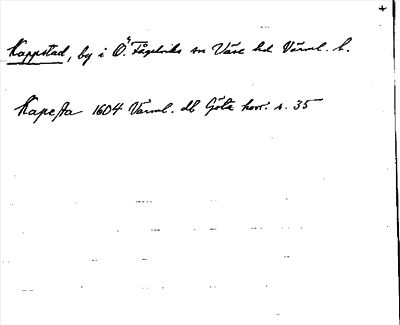 Kappstad, by i Ö. Fågelviks sn Väse hd Värml. l.
Kapesta 1604 Värml. db Göta hovr. s. 35